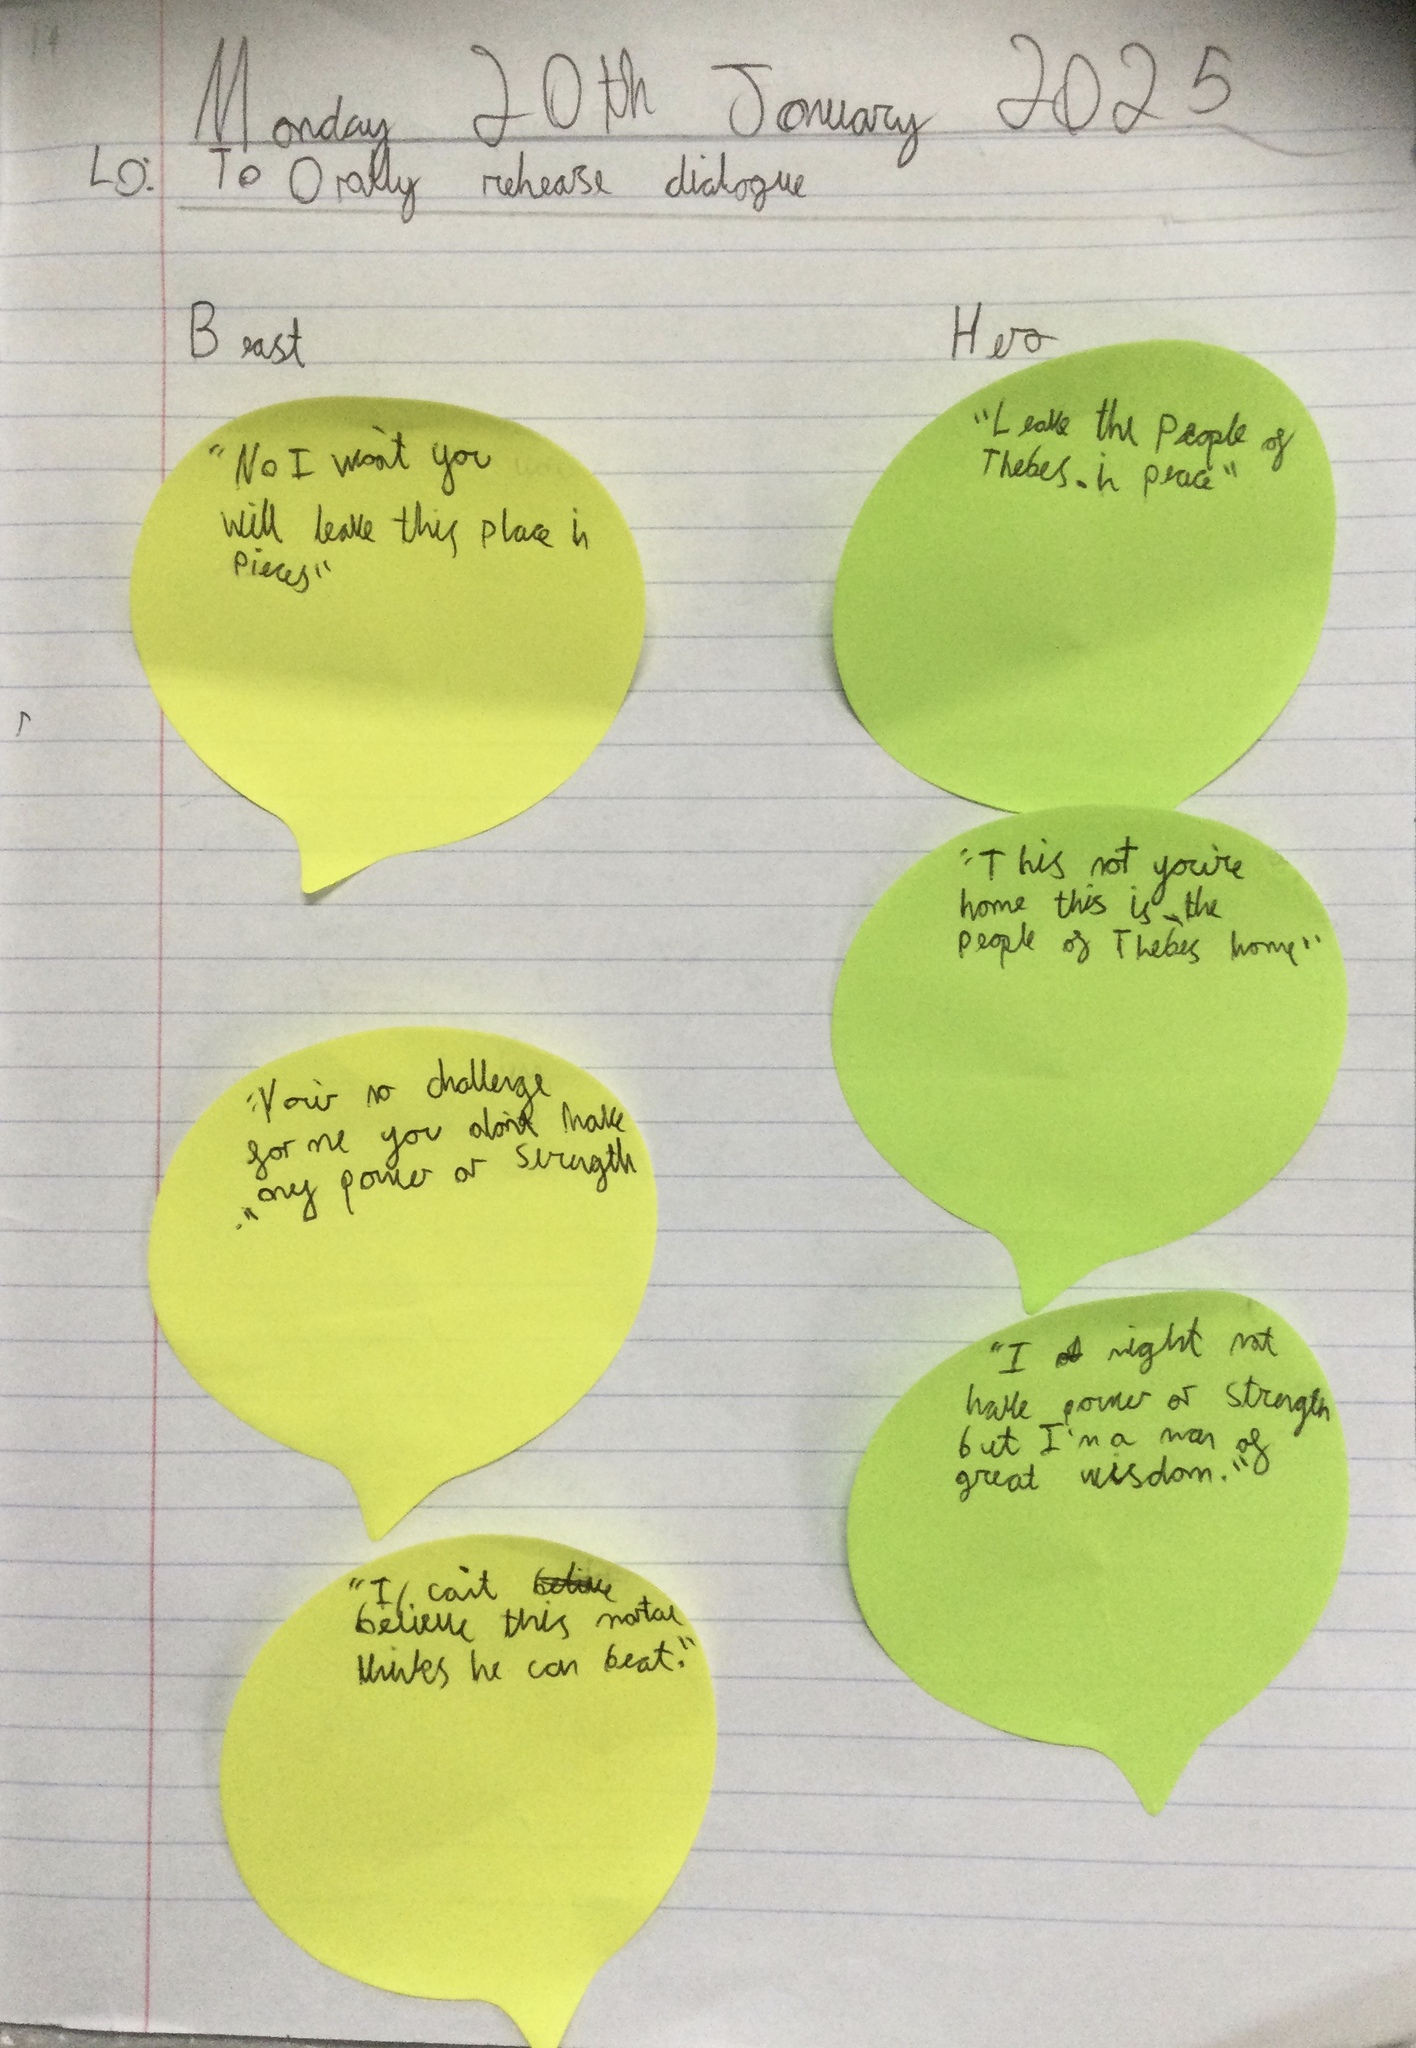 Monday 20th January 2025
LO: To Orally rehease dialogue
Beast
Hero
"No I won't you
will leave this place in
pieces"
"Leave the people of
Thebes. in peace"
"This not you're
home this is the
people of Thebes home"
"Your no challenge
for me you don't have
any power or strength
."
"I might not
have power or strength
but I'm a man of
great wisdom."
"I can't belive
believe this mortal
thinks he can beat."